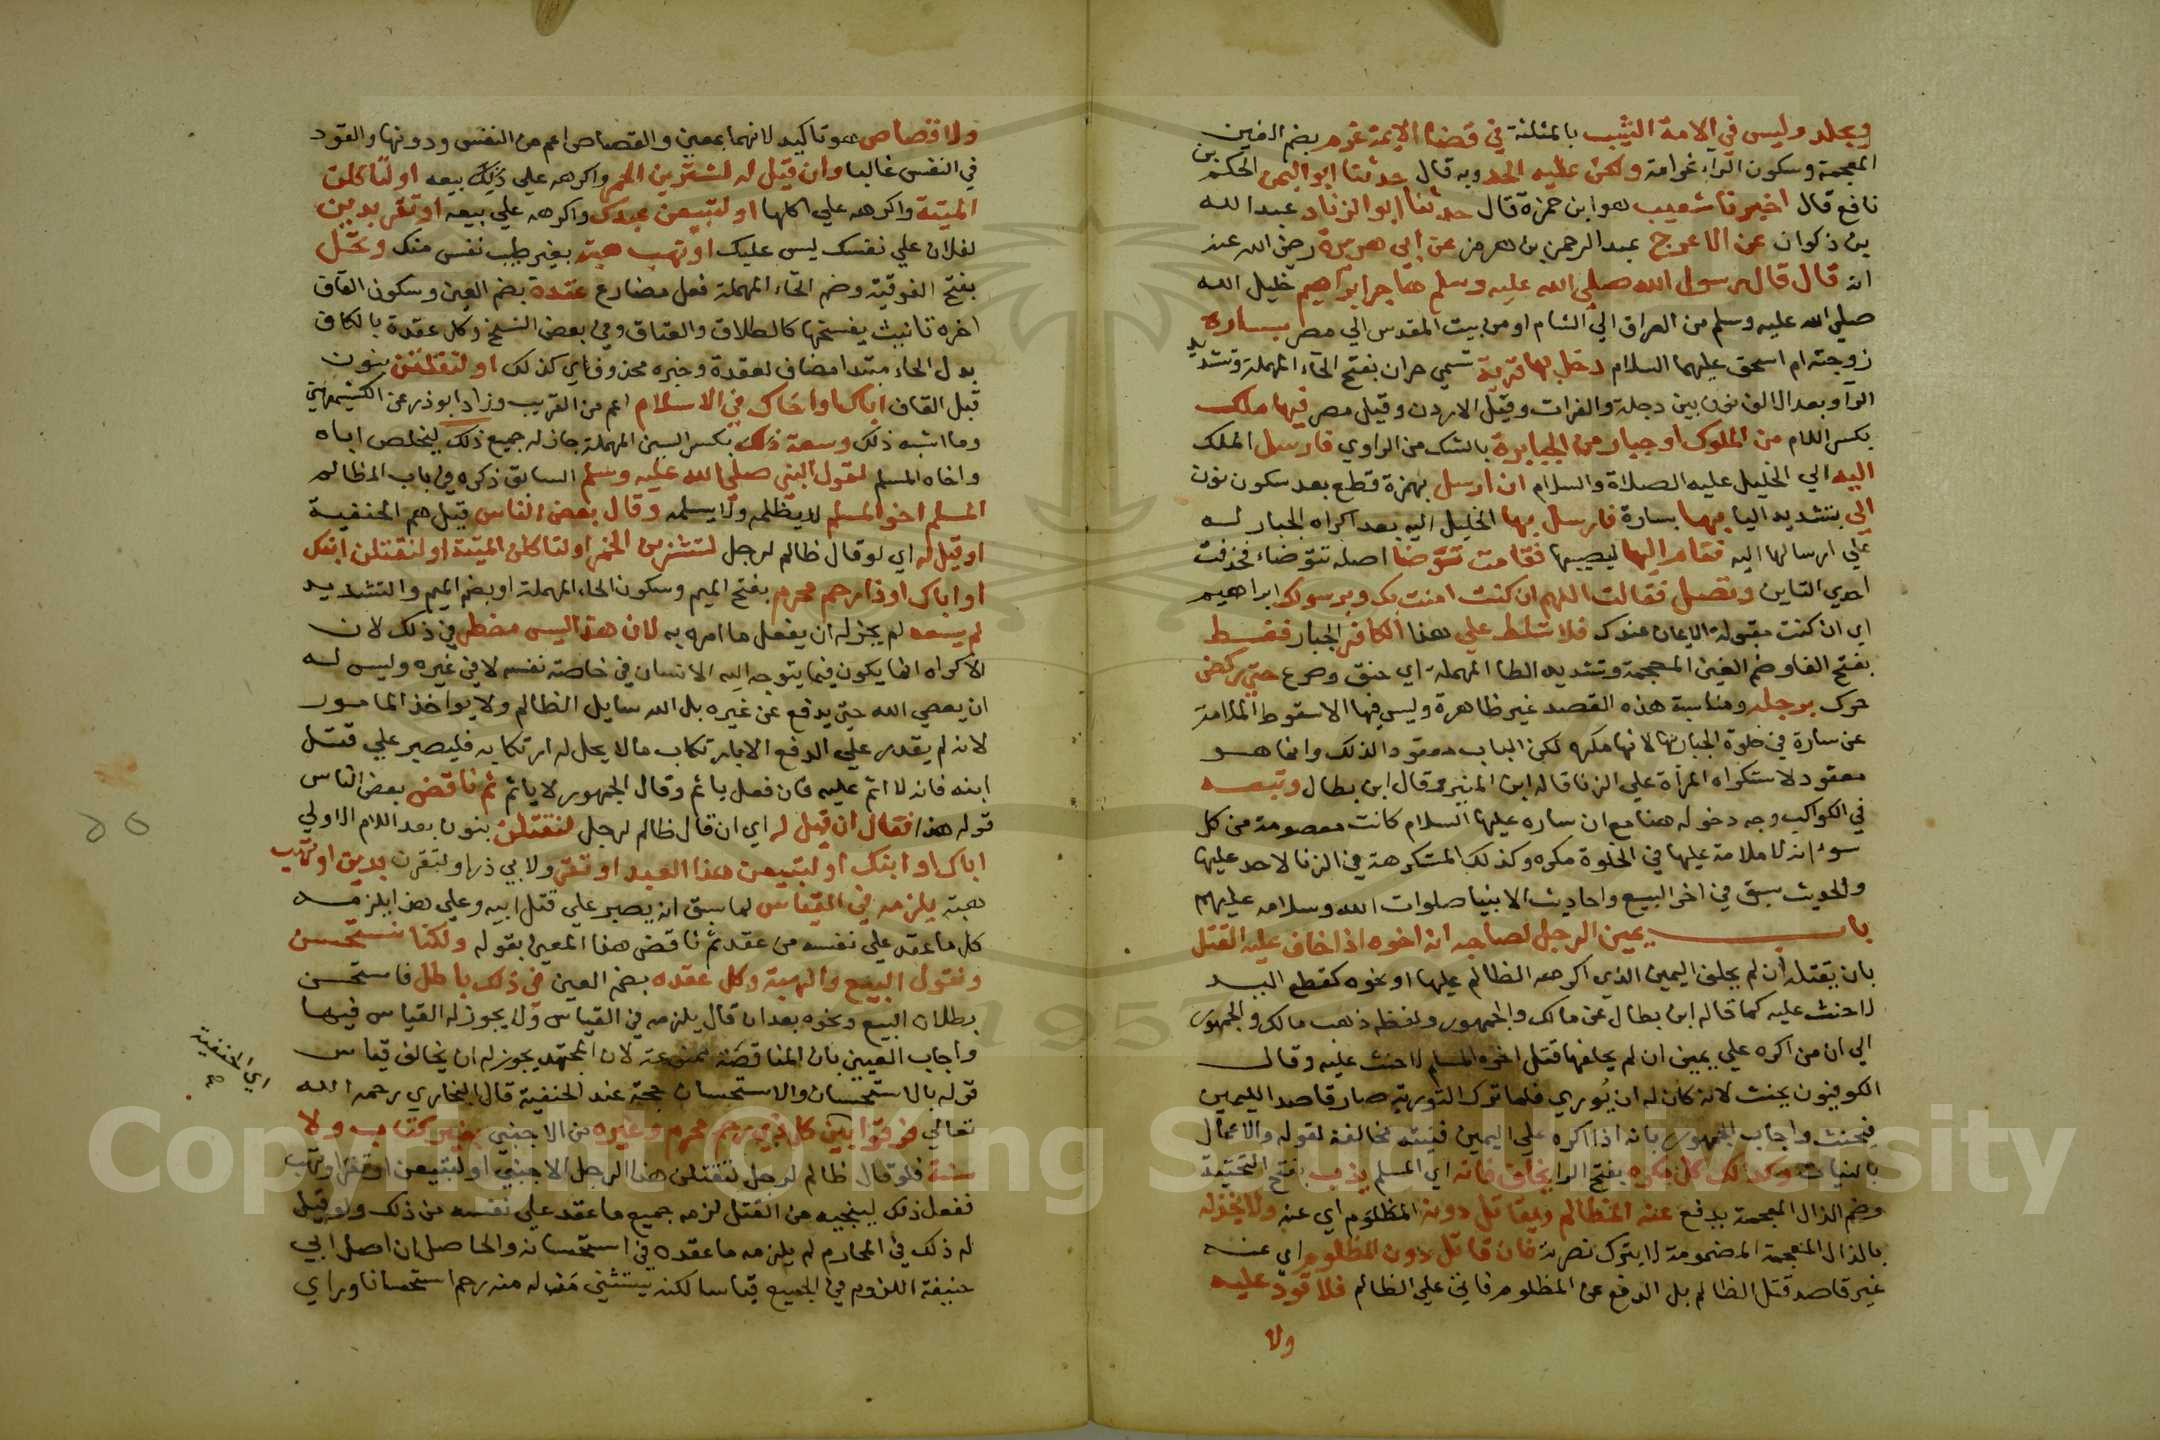 ويجلد وليس في الامة الثيب بالمثلثة في قضاء الايمة غرم بضم الغين
المعجمة وسكون الراء غرامة ولكن عليه الحد وبه قال حدثنا ابو اليمن الحكم بن
نافع قال اخبرنا شعيب هو ابن حمزة قال حدثنا ابو الزناد عبد الله
بن ذكوان عن الاعرج عبد الرحمن بن هرمز عن ابي هريرة رضي الله عنه
انه قال قال رسول الله صلي الله عليه وسلم هاجر ابراهيم خليل الله
صلي الله عليه وسلم من العراق الي الشام او من بيت المقدس الي مصر بسارة
زوجته ام اسحق عليهما السلام دخل بها قرية تسمي حران بفتح الحاء المهملة وتشديد
الرا وبعد الالف نون بين دجلة والفرات وقيل الاردن وقيل مصر فيها ملك
بكسر اللام من الملوك او جبار من الجبابرة بالشك من الراوي فارسل الملك
اليه الي الخليل عليه الصلاة والسلام ان ارسل بهمزة قطع بعد سكون نون
الي بتشديد اليا بها بسارة فارسل بها الخليل اليه بعد اكراه الجبار له
علي ارسالها اليه فقام اليها ليصيبها فقامت توضا اصله تتوضاء فحذفت
احدي التاين وتصل فقالت اللهم ان كنت امنت بك وبرسولك ابراهيم
اي ان كنت مقبولة الايمان عندك فلا تسلط علي هذا الكافر الجبار فغط
بفتح الفا وضم الغين المعجمة وتشديد الطا المهملة اي خنق وصرع حتي ركض
حرك برجله ومناسبة هذه القصه غير ظاهرة وليس فيها الا سقوط الملامة
عن سارة في خلوة الجبار بها لانها مكره لكن الباب معقود لذلك وانما هو
معقود لاستكراه المرأة علي الزنا قاله ابن المنير وقال ابن بطال وتبعه
في الكواكب وجه دخوله هنا مع ان ساره عليها السلام كانت معصومة من كل
سوء انه لا ملامة عليها في الخلوة مكره وكذلك المستكرهة في الزنا لاحد عليها
والحديث سبق في اخر البيع واحاديث الانبيا صلوات الله وسلامه عليهم
باب يمين الرجل لصاحبه انه اخوه اذا خاف عليه القتل
بان يقتله ان لم يحلف اليمين الذي اكرهه الظالم عليها او نحوه كقطع اليد
لا حنث عليه كما قاله ابن بطال عن مالك والجمهور ولفظه ذهب مالك والجمهور
الي ان من اكره علي يمين ان لم يحلفها قتل اخوه المسلم لا حنث عليه وقال
الكوفيون يحنث لانه كان له ان يُوري فلما ترك التورية صار قاصد اليمين
فيحنث واجاب الجمهور بانه اذا اكره علي اليمين فنيته مخالفة لقوله والاعمال
بالنيات وكذلك كل مكره بفتح الرا يخاف فانه اي المسلم يذب بفتح التحتية
وضم الذال المعجمة يدفع عنه الظالم ويقاتل دونه المظلوم اي عنه ولا يخذله
بالذال المعجمة المضمومة لا يترك نصرته فان قاتل دون المظلوم اي عنه
غير قاصد قتل الظالم بل الدفع عن المظلوم فاتي علي الظالم فلا قود عليه
ولا
ولا قصاص هو تاكيد لانهما بمعين والقصاص اعم من النفس ودونها والقود
في النفس غالبا وان قيل له لتشربن الخمر واكرهه علي ذلك بيعه او لتاكلن
الميتة واكرهه علي اكلها او لتبيعن عبدك واكرهه علي بيعه او تقر بدين
لفلان علي نفسك ليس عليك او تهب هبة بغير طيب نفس منك وتحل
بفتح الفوقية وضم الحاء المهملة فعل مضارع عقدة بضم العين وسكون القاف
اخره تانيث يفسخها كالطلاق والعتاق وفي بعض النسخ وكل عقدة بالكاف
بدل الحاء مبتدا مضاف لعقدة وخبره محذوف اي كذلك او لتقتلن بنون
قبل القاف اباك او اخاك في الاسلام اعم من القريب وزاد ابو ذر عن الكشميهني
وما اشبه ذلك وسعه ذلك بكسر السين المهملة جاز له جميع ذلك ليخلص اباه
واخاه المسلم لقول النبي صلي الله عليه وسلم السابق ذكره في باب المظالم
المسلم اخو المسلم لا يظلمه ولا يسلمه وقال بعض الناس قيل هم الحنفية
او قيل له اي لو قال ظالم لرجل لتشربن الخمر او لتاكلن الميتة او لنقتلن ابنك
او اباك او ذا رحم محرم بفتح الميم وسكون الحاء المهملة او بضم الميم والتشديد
لم يسعه لم يجز له ان يفعل ما امره به لان هذا ليس مضطر في ذلك لان
الاكراه انما يكون فيما يتوجه اليه الانسان في خاصة نفسه لا في غيره وليس له
ان يعصي الله حتي يدفع عن غيره بل الله سايل الظالم ولا يواخذ المامور
لانه لم يقدر علي الدفع الا بارتكاب مالا يحل له ارتكابه فليصبر علي قتل
ابنه فانه لا اثم عليه فان فعل ياثم وقال الجمهور لا ياثم ثم ناقض بعض الناس
قوله هذا فقال ان قيل له اي ان قال ظالم لرجل لنقتلن بنون بعد اللام الاولي
اباك او ابنك او لتبيعن هذا العبد او تقر ولابي ذر او لتقرن بدين او تهب
هبة يلزمه في القياس لما سبق انه يصبر علي قتل ابيه وعلي هذا يلزمه
كل ما عقد علي نفسه من عقد ثم ناقض هذا المعين بقوله ولكنا نستحسن
ونقول البيع والهبة وكل عقده بضم العين في ذلك باطل فاستحسن
بطلان البيع ونحوه بعد ان قال يلزمه في القياس ولا يجوز له القياس فيها
واجاب العيني بان المناقضة ممنوعة لان المجتهد يجوز له ان يخالف قياس
قوله بالاستحسان والاستحسان حجة عند الحنفية قال البخاري رحمه الله
تعالي فرقوا بين كل ذي رحم محرم وغيره من الاجنبي بغير كتاب ولا
سنة فلو قال ظالم لرجل لنقتلن هذا الرجل الاجنبي او لتبيعن او تقر او تهب
ففعل ذلك لينجيه من القتل لزمه جميع ما عقد علي نفسه من ذلك ولو قيل
له ذلك في المحارم لم يلزمه ما عقده في استحسانه والحاصل ان اصل ابي
حنيفة اللزوم في الجميع قياسا لكنه يستثني من له منه رحم استحسانا وراي
اي الحنفية
Copyright © King Saud University
1957